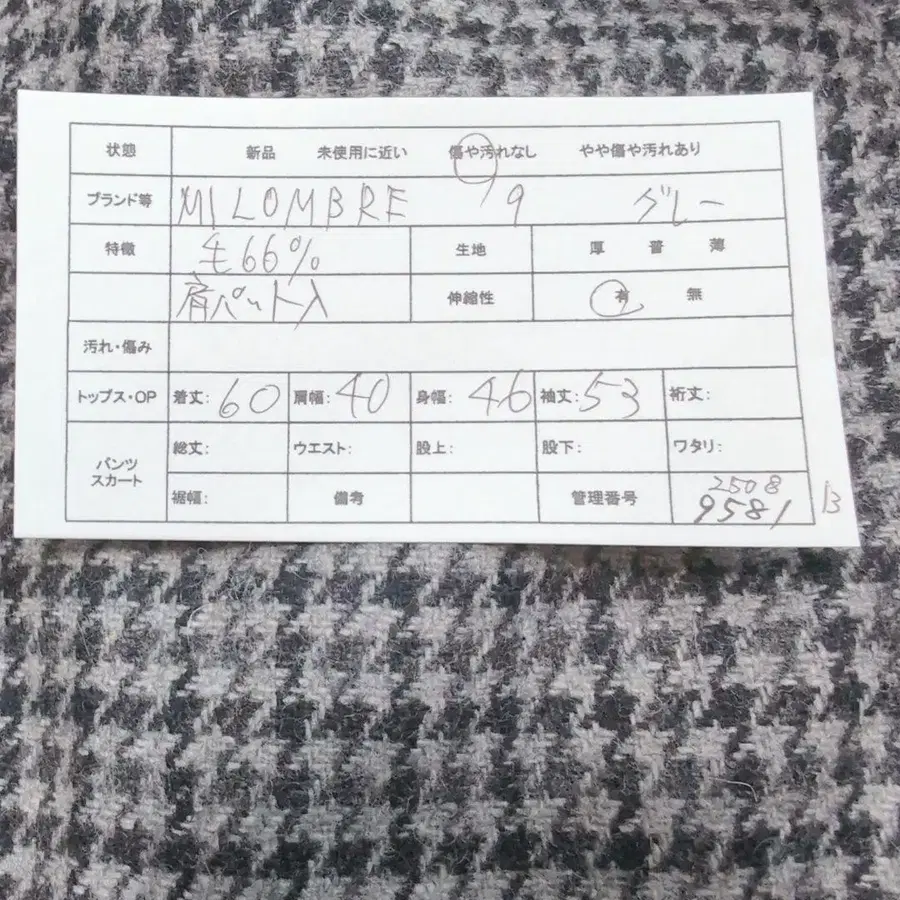 状態 新品 未使用に近い 傷や汚れなし やや傷や汚れあり
ブランド等 MILOMBRE 9 グレー
特徴 毛66% 生地 厚 普 薄
肩パット入 伸縮性 有 無
汚れ・傷み
トップス・OP 着丈: 60 肩幅: 40 身幅: 46 袖丈: 53 裄丈:
パンツ スカート 総丈: ウエスト: 股上: 股下: ワタリ:
裾幅: 備考 管理番号 2508
9581 B